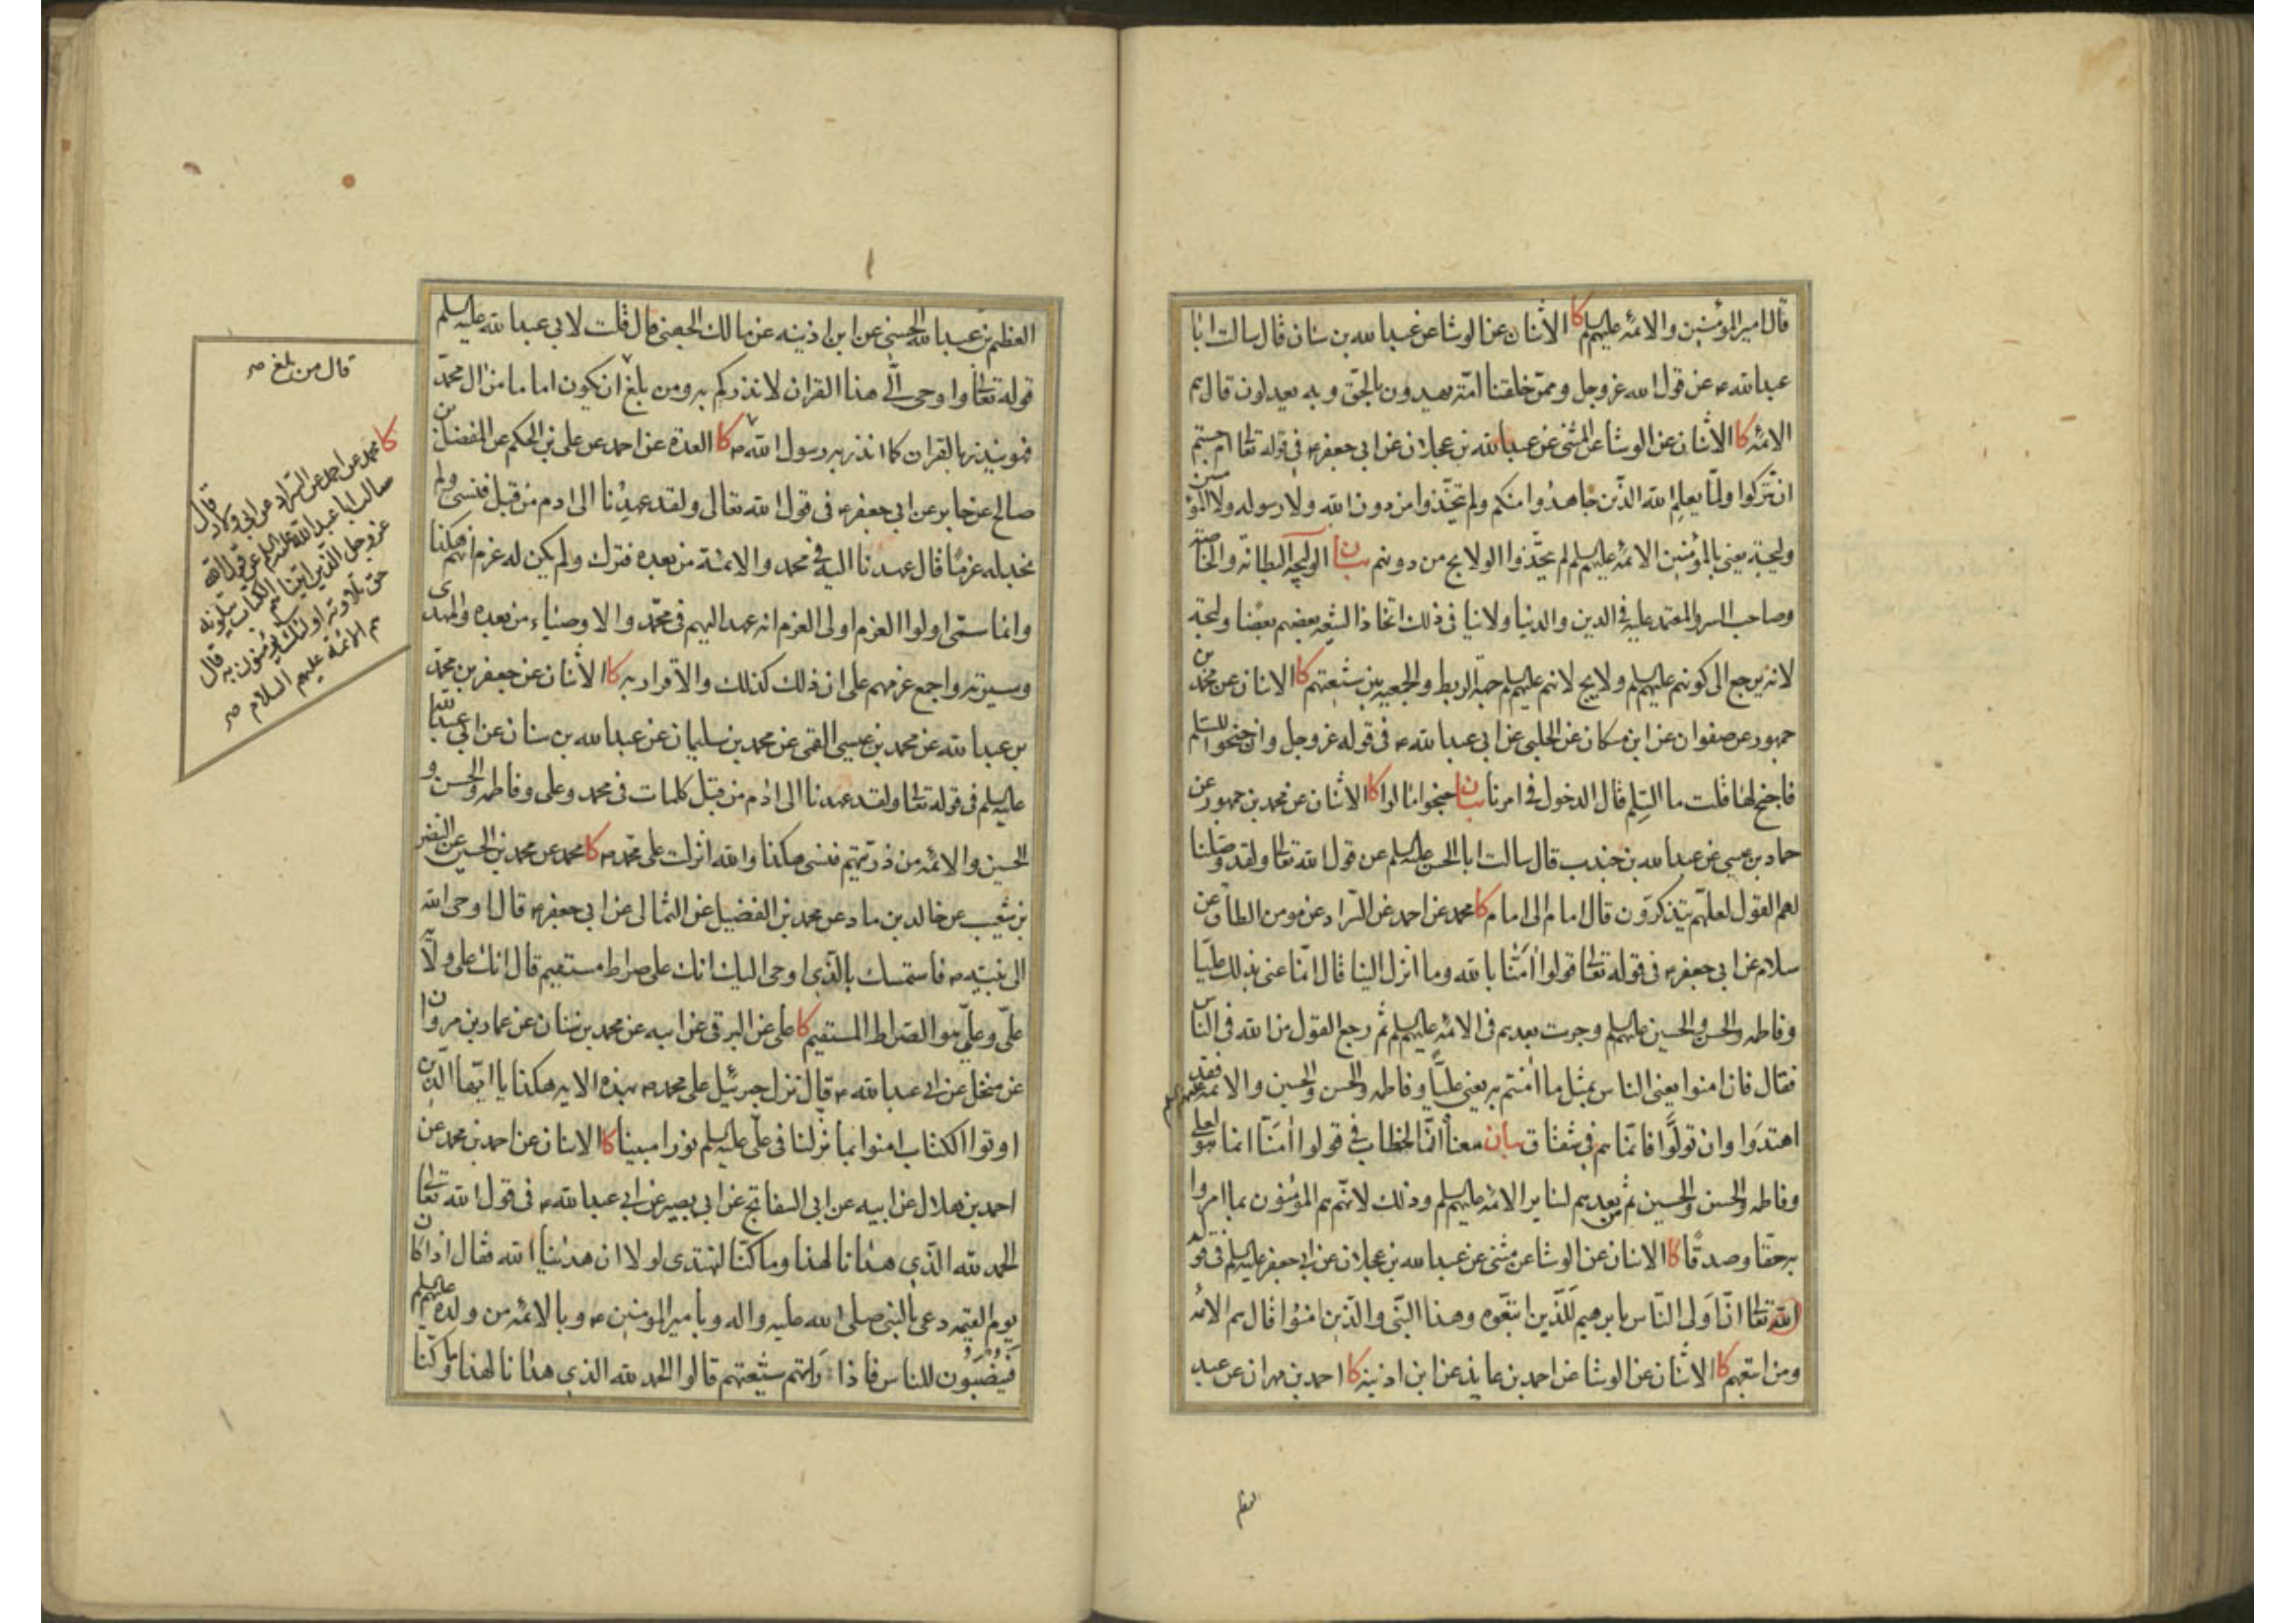 قال امير المؤمنين والائمه عليهم السلم كا الاثنان عن الوشا عن عبدالله بن سنان قال سالت ابا
عبدالله ع عن قول الله عز وجل وممن خلقنا امّة يهدون بالحق وبه يعدلون قال هم
الائمه كا الاثنان عن الوشا عن المثنى عن عبدالله بن عجلان عن ابي جعفر ع في قوله تعالى ام حسبتم
ان تتركوا ولمّا يعلم الله الذين جاهدوا منكم ولم يتخذوا من دون الله ولا رسوله ولا المؤمنين
وليجة يعني بالمؤمنين الائمه عليهم السلم لم يتخذوا الولايج من دونهم بيان الوليجة البطانة والخاصة
وصاحب السر والمعتمد عليه في الدين والدنيا ولا ينافي ذلك اتخاذ الشيعه بعضهم بعضا وليجة
لانه يرجع الى كونهم عليهم السلم ولايج لانهم عليهم السلم جهة الربط والجمعيه بين شيعتهم كا الاثنان عن محمد بن
جمهور عن صفوان عن ابن مسكان عن الحلبي عن ابي عبدالله ع في قوله عز وجل وان جنحوا للسلم
فاجنح لها قلت ما السلم قال الدخول في امرنا بيان جنحوا مالوا كا الاثنان عن محمد بن جمهور عن
حماد بن عيسى عن عبدالله بن جندب قال سالت ابا الحسن عليه السلم عن قول الله تعالى ولقد وصلنا
لهم القول لعلهم يتذكرون قال امام الى امام كا محمد عن احمد عن السّراد عن مومن الطاق عن
سلام عن ابي جعفر ع في قوله تعالى قولوا اٰمنّا بالله وما انزل الينا قال انّما عنى بذلك عليّا
وفاطمه والحسن والحسين عليهم السلم وجرت بعدهم في الائمه عليهم السلم ثم رجع القول من الله في الناس
فقال فان امنوا يعنى الناس بمثل ما اٰمنتم به يعني عليّا وفاطمه والحسن والحسين والائمه عليهم السلم فقد
اهتدَوا وان تولّوا فانّما هم في شقاق بيان معناه انّ الخطاب في قولوا اٰمنّا انما هو لعلي
وفاطمه والحسن والحسين ثم من بعدهم لساير الائمه عليهم السلم وذلك لانّهم هم المؤمنون بما امروا
به حقّا وصدقًا كا الاثنان عن الوشا عن مثنى عن عبدالله بن عجلان عن ابي جعفر عليه السلم في قوله
الله تعالى انّ اَولى النّاس بابرهيم لَلّذين اتبعوه وهذا النّبي والّذين امنوا قال هم الائمه
ومن اتبعهم كا الاثنان عن الوشا عن احمد بن عايذ عن ابن اذينه كا احمد بن مهران عن عبد
العظيم بن عبدالله الحسني عن ابن اذينه عن مالك الجهني قال قلت لابي عبدالله عليه السلم
قوله تعالى واوحي الّي هذا القران لانذركم به ومن بلغ ان يكون اماما من ال محمّد
فهو ينذر بالقران كما انذر به رسول الله ص كا العدة عن احمد عن علي بن الحكم عن المفضل بن
صالح عن جابر عن ابي جعفر ع في قول الله تعالى ولقد عهدنا الى ادم من قبل فنسي ولم
نجد له عزمًا قال عهدنا اليه في محمد والائمّة من بعده فترك ولم يكن له عزم انهم هكذا
وانما سمّى اولوا العزم اولى العزم انه عهد اليهم في محمّد والاوصياء من بعده والمهدى
وسيرته واجمع عزمهم على ان ذلك كذلك والاقرار به كا الاثنان عن جعفر بن محمّد
بن عبدالله عن محمد بن عيسى القمى عن محمد بن سليمان عن عبدالله بن سنان عن ابي عبدالله
عليه السلم في قوله تعالى ولقد عهدنا الى ادم من قبل كلمات في محمد وعلي وفاطمه والحسن و
الحسين والائمه من ذريّتهم فنسى هكذا والله انزلت على محمّد ص كا محمد عن محمد بن الحسين عن النضر
بن شعيب عن خالد بن ماد عن محمد بن الفضيل عن الثمالي عن ابي جعفر ع قال اوحى الله
الى نبيّه ص فاستمسك بالّذي اوحي اليك انك على صراط مستقيم قال انك على ولاية
عليّ وعليّ هو الصّراط المستقيم كا علي عن البرقي عن ابيه عن محمد بن سنان عن عمار بن مروان
عن منخل عن ابي عبدالله ع قال نزل جبرئيل على محمد ص بهذه الايه هكذا يا ايّها الّذين
اوتوا الكتاب امنوا بما نزلنا في عليّ عليه السلم نورا مبينا كا الاثنان عن احمد بن محمد عن
احمد بن هلال عن ابيه عن ابي السفاتج عن ابي بصير عن ابي عبدالله ع في قول الله تعالى
الحمد لله الّذي هدٰانا لهذا وما كنّا لنهتدى لولا ان هدٰينا الله فقال اذا كان
يوم القيمه دعى بالنبي صلى الله عليه واله وبامير المومنين ع وبالائمه من ولده عليهم السلم
فينصبون للناس فاذا رَاتهم شيعتهم قالوا الحمد لله الذي هدٰانا لهذا وما كنّا
قال من بلغ صح
كا محمد عن احمد عن السّراد عن ابي ولاد قال
سالت ابا عبدالله عليه السلم عن قول الله
عز وجل الّذين اتيناهم الكتاب يتلونه
حق تلاوته اولئك يؤمنون به قال
هم الائمّة عليهم السلام صح